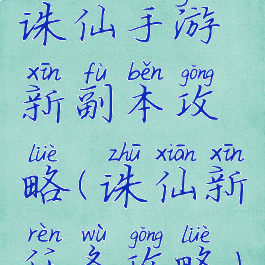 诛仙手游
xīn fù běn gōng
新副本攻
lüè zhū xiān xīn
略(诛仙新
rèn wù gōng lüè
任务攻略)